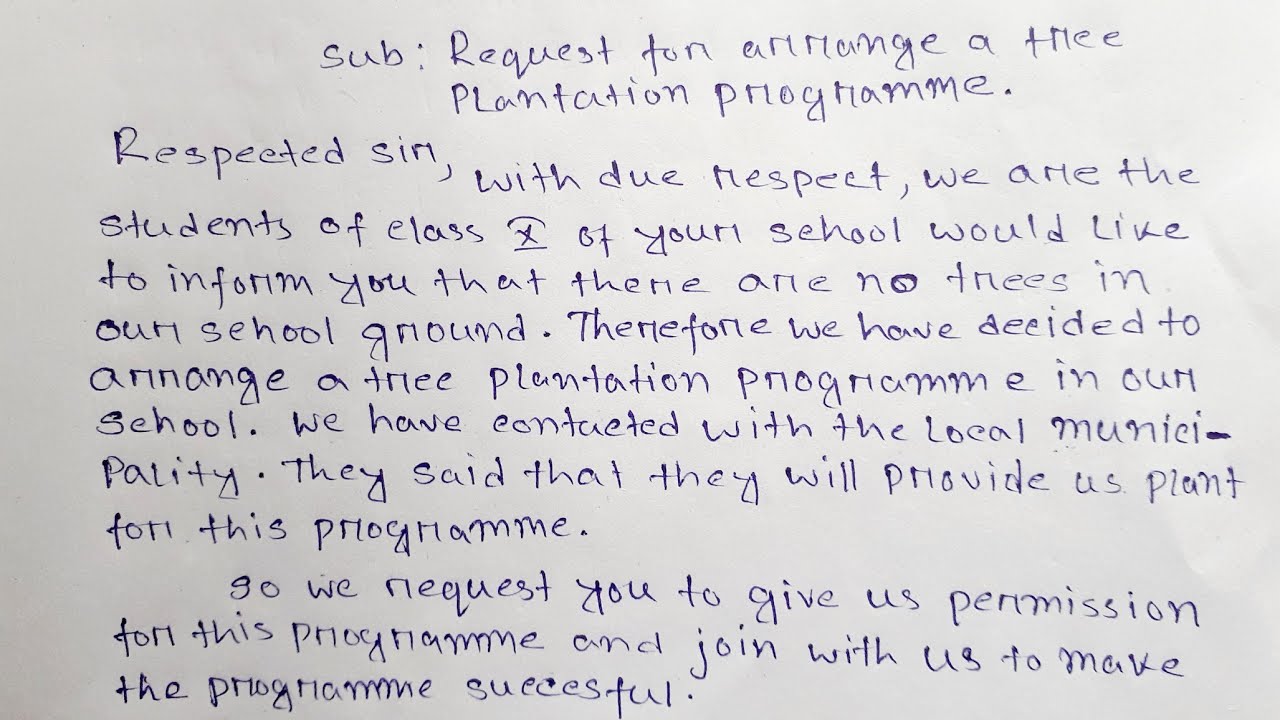 Sub: Request for arrange a tree
Plantation programme.
Respected sir,
with due respect, we are the
students of class X of your school would like
to inform you that there are no trees in
our school ground. Therefore we have decided to
arrange a tree plantation programme in our
school. We have contacted with the local munici-
pality. They said that they will provide us plant
for this programme.
So we request you to give us permission
for this programme and join with us to make
the programme succesful.